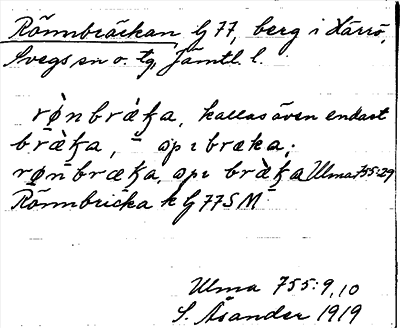 Rönnbräckan G 77, berg i Härrö,
Svegs sn o. tg, Jämtl. l.
rø̀nbræ̀ka, kallas även endast
bræ̀ka, – op ɪ bræka;
rønbræka, opɪ bræ̀ka Ulma 755:29
Rönnbricka k G 77 S M
Ulma 755:9,10
S. Åsander 1919